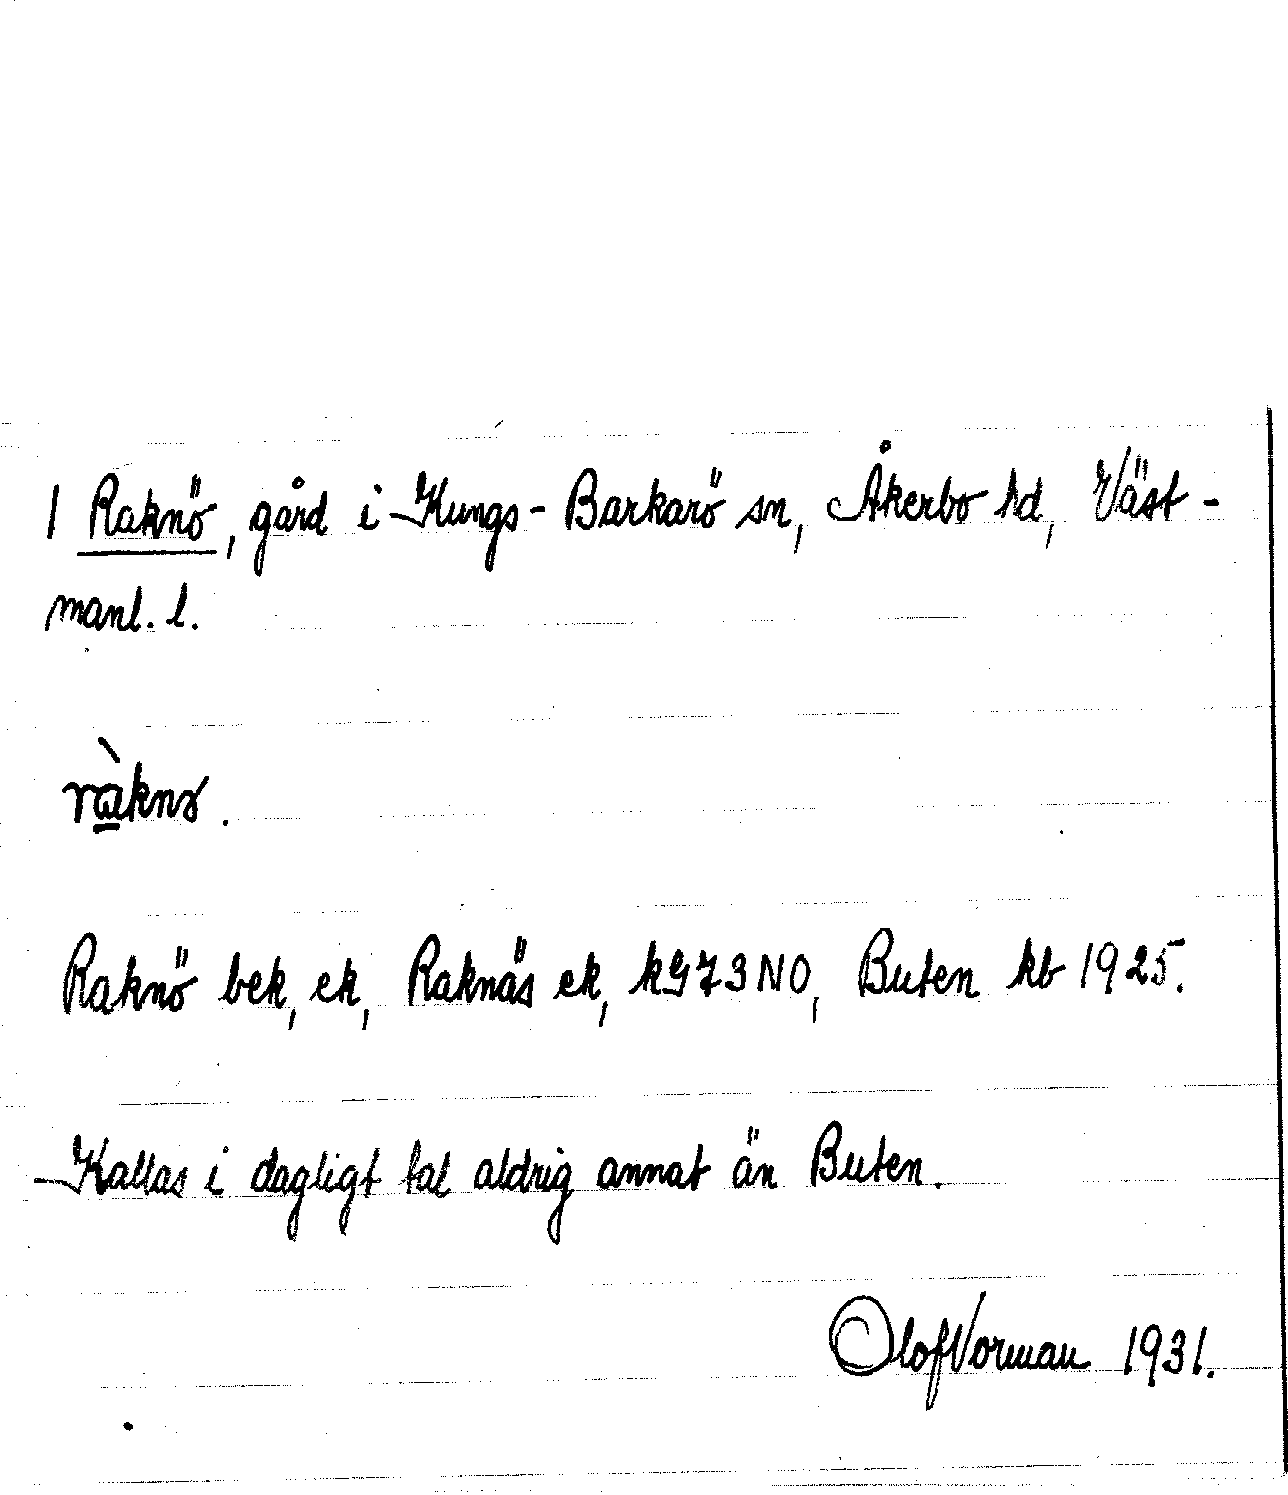 1 Raknö, gård i Kungs-Barkarö sn, Åkerbo hd, Väst-
manl. l.
Raknö bek, ek, Raknäs ek, kG73NO, Buten kb 1925.
Kallas i dagligt tal aldrig annat än Buten.
Olof Vorman 1931.